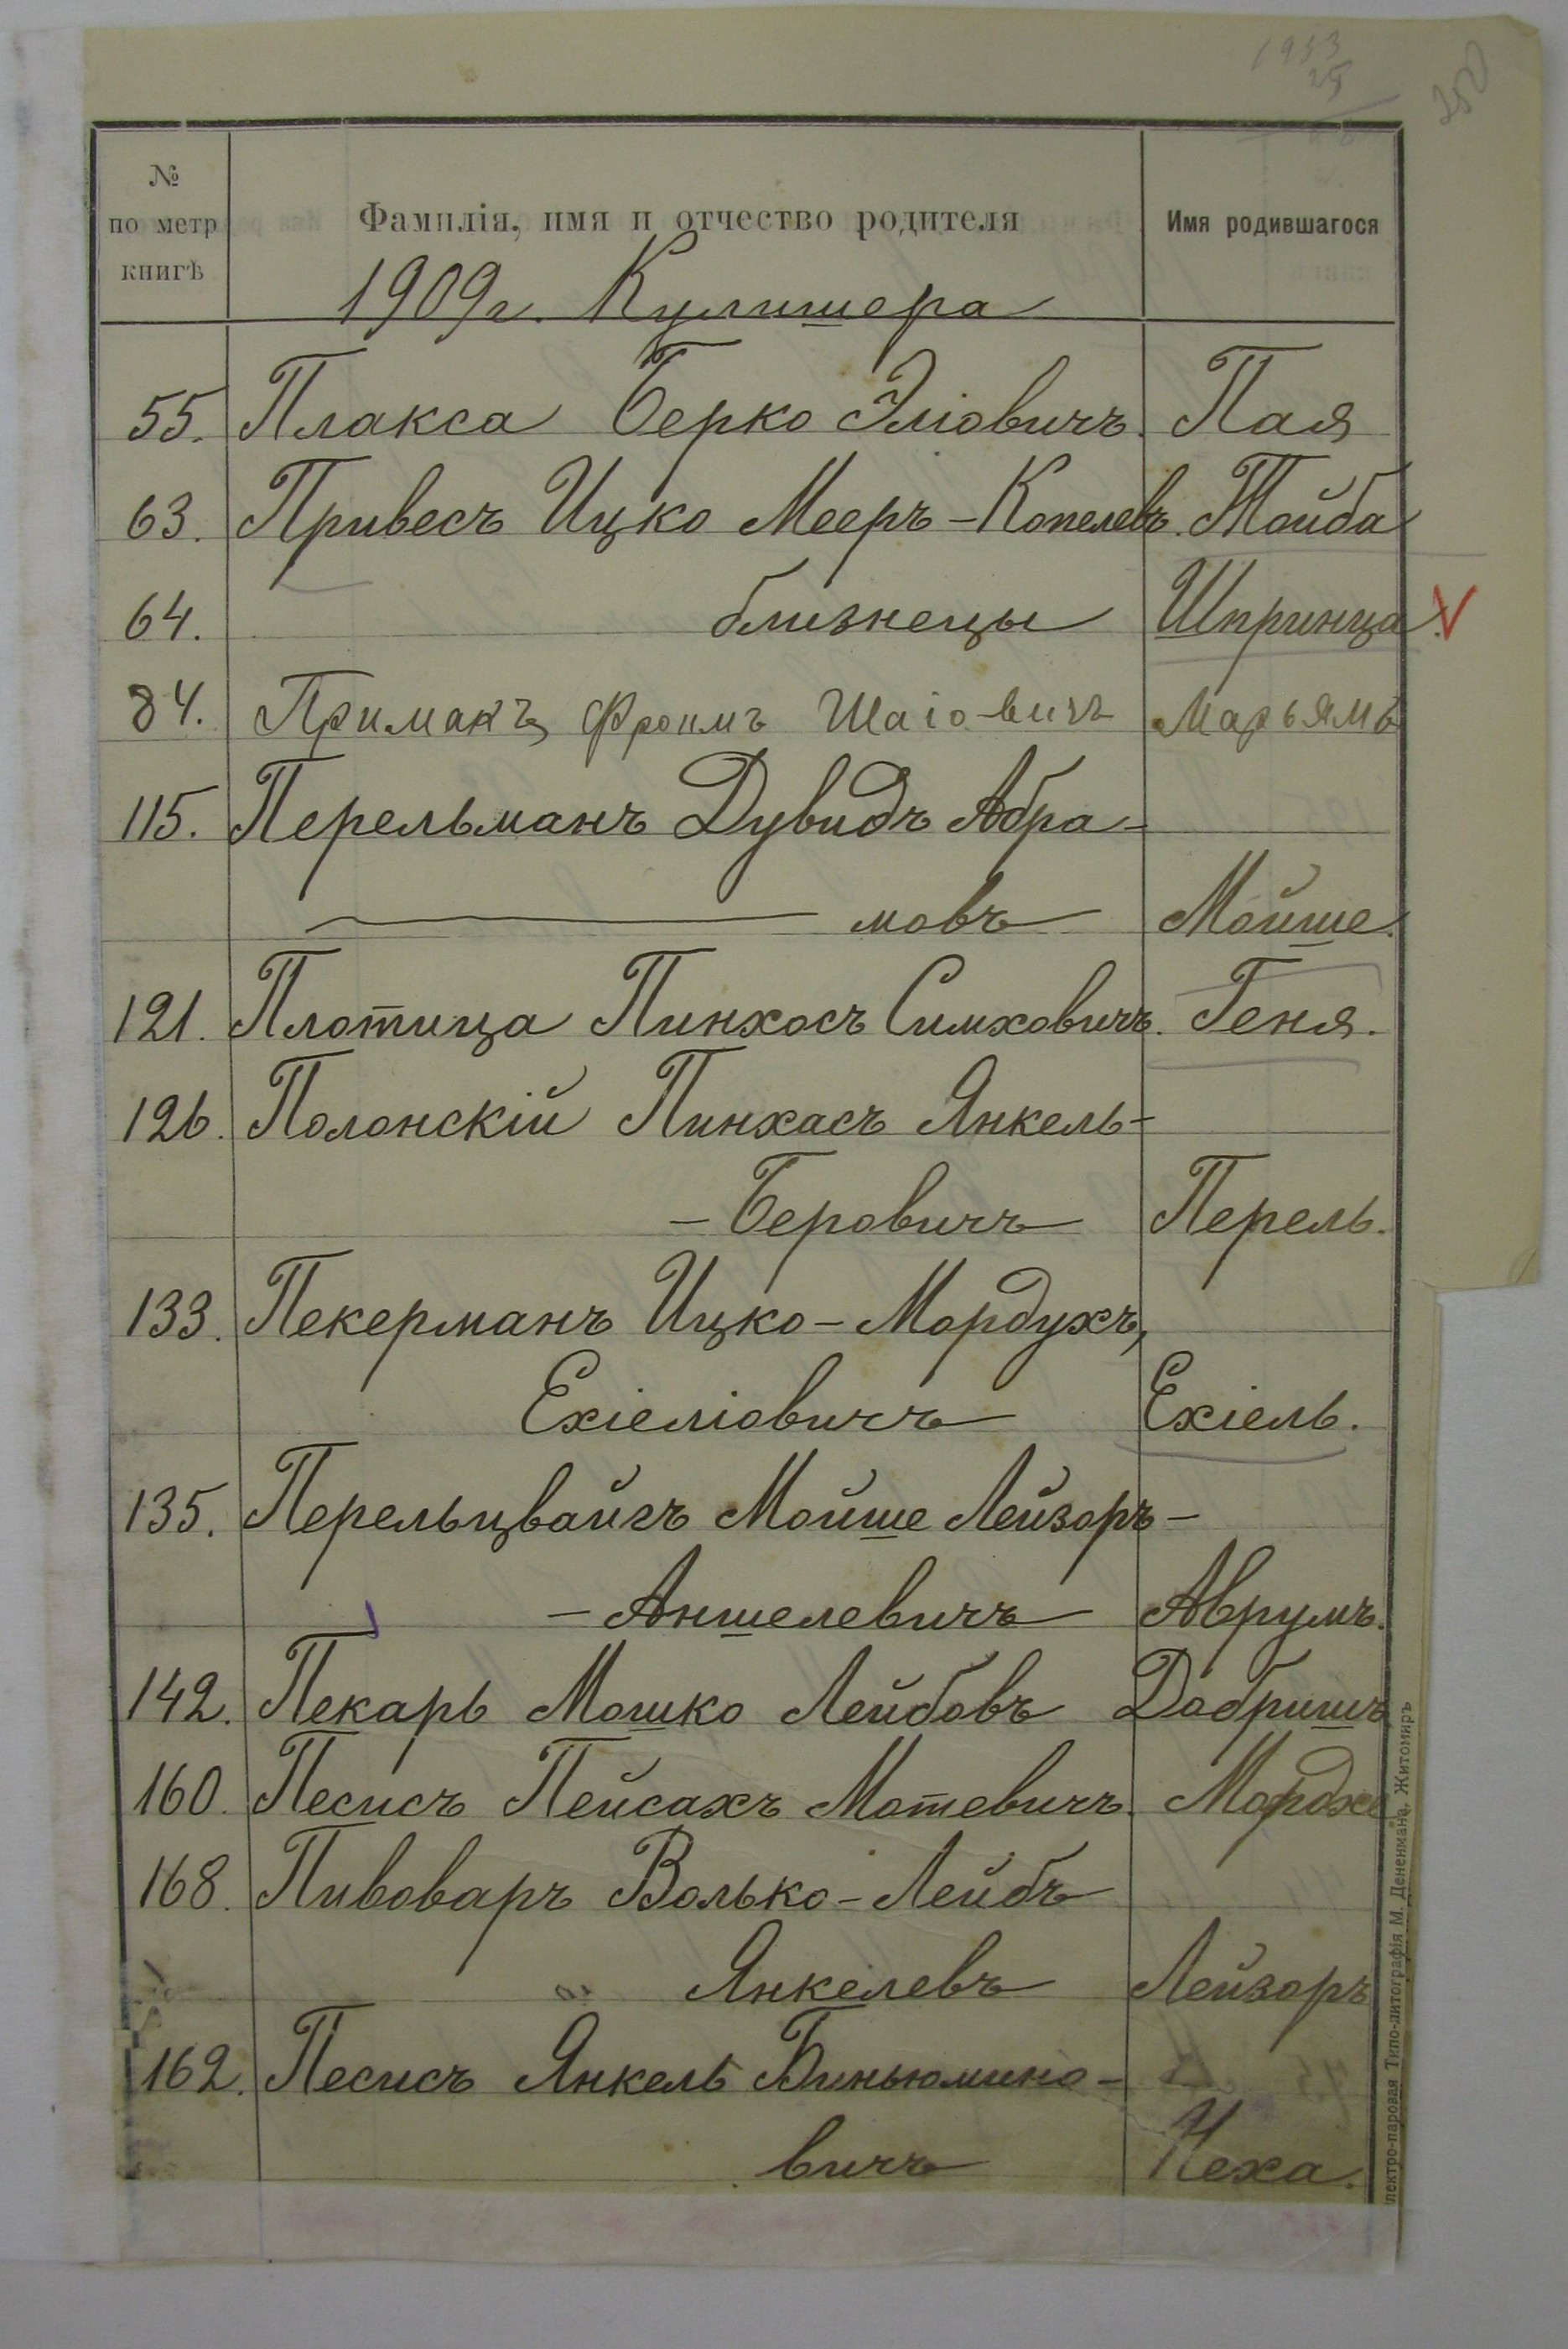 1933
25
250
№
по метр
книгѣ
Фамилія, имя и отчество родителя
Имя родившагося
1909г. Кулишера
55. Плакса Берко Эліовичъ. Пая
63. Привесъ Ицко Мееръ-Копелевъ. Тойба
64. близнецы Шпринца V
84. Примакъ Фроимъ Шаіо-вичъ Марьямъ
115. Перельманъ Дувидъ Абра-
мовъ Мойше.
121. Плотица Пинхосъ Симховичъ. Геня.
126. Полонскій Пинхасъ Янкель-
-Беровичъ Перель.
133. Пекерманъ Ицко-Мордухъ,
Ехіеліовичъ Ехіель.
135. Перельцвайгъ Мойше Лейзоръ-
-Аншелевичъ Аврумъ.
142. Пекарь Мошко Лейбовъ Добришъ
160. Песисъ Пейсахъ Мотевичъ. Мордхе
168. Пивоваръ Волько-Лейбъ
Янкелевъ Лейзоръ
162. Песисъ Янкель Биньюмино-
вичъ Неха.
лектро-паровая Типо-литографія М. Дененмана, Житомиръ